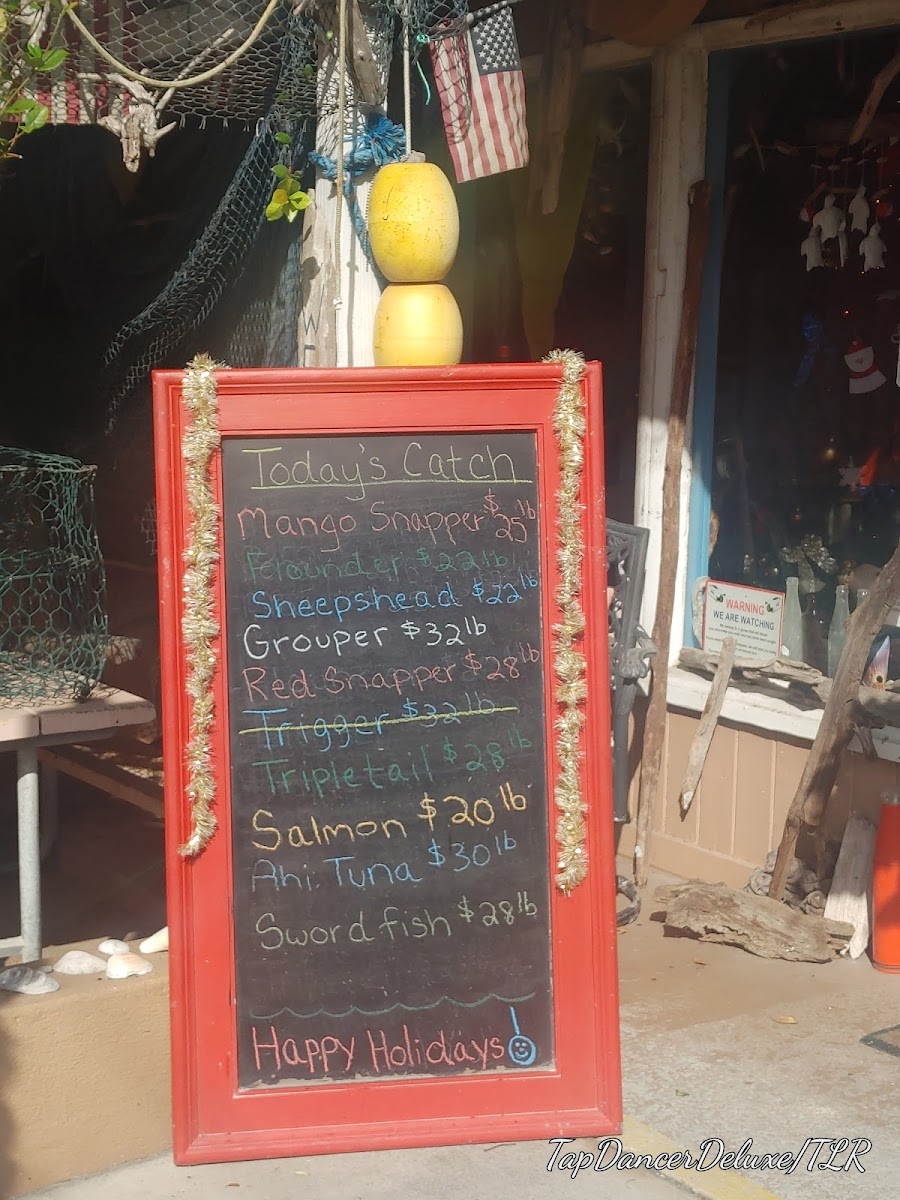 Today's Catch
Mango Snapper $25 lb
Flounder $22 lb
Sheepshead $22 lb
Grouper $32 lb
Red Snapper $28 lb
Trigger $32 lb
Tripletail $28 lb
Salmon $20 lb
Ahi Tuna $30 lb
Sword fish $28 lb
Happy Holidays!
WARNING
WE ARE WATCHING
TapDancerDeluxe/TLR